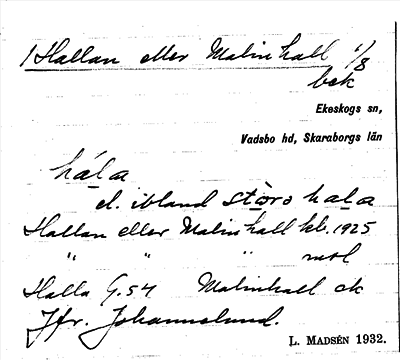 1 Hallan eller Malinhall 1/8
bek
Ekeskogs sn,
Vadsbo hd, Skaraborgs län
hála
el. ibland stòrs hala
Hallan eller Malinhall kb. 1925
" " " msl
Halla G.54 Malinhall ek
Jfr. Johannelund.
L. MADSÉN 1932.